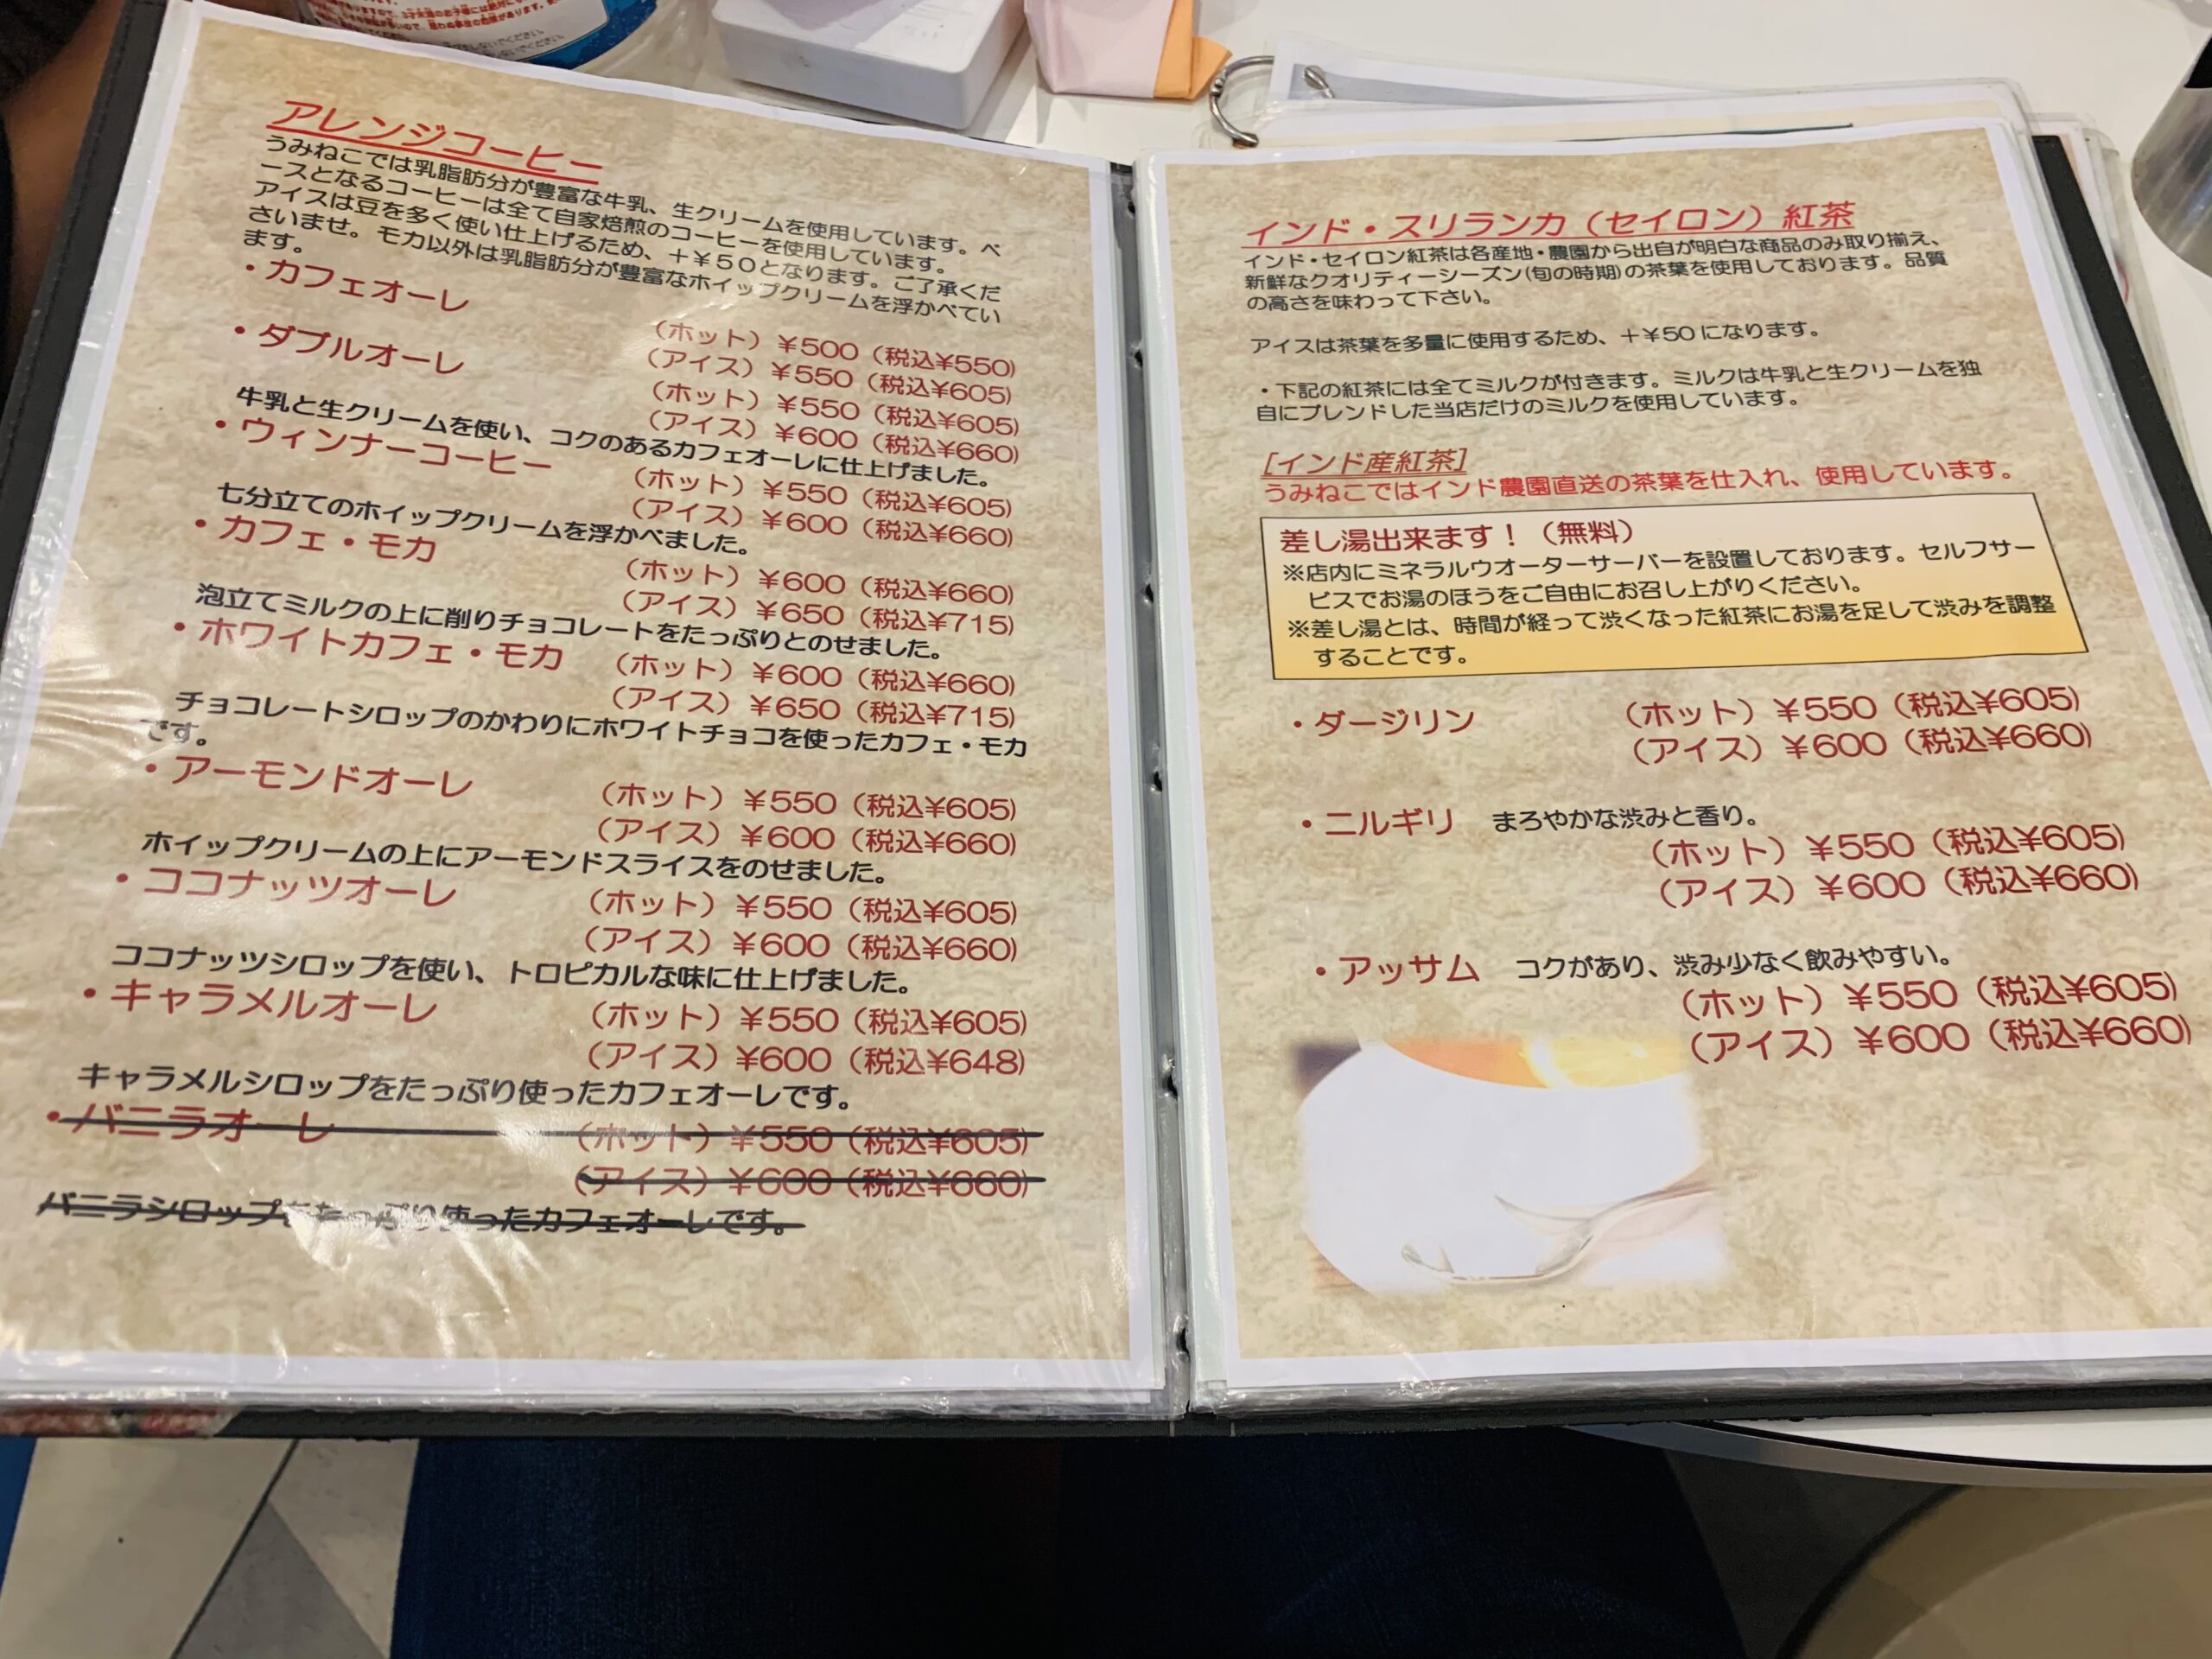 アレンジコーヒー
うみねこでは乳脂肪分が豊富な牛乳、生クリームを使用しています。ベ
ースとなるコーヒーは全て自家焙煎のコーヒーを使用しています。
アイスは豆を多く使い仕上げるため、＋￥５０となります。ご了承くだ
さいませ。モカ以外は乳脂肪分が豊富なホイップクリームを浮かべてい
ます。
・カフェオーレ
（ホット）￥500（税込¥550）
（アイス）￥550（税込¥605）
・ダブルオーレ
（ホット）￥550（税込¥605）
（アイス）￥600（税込¥660）
牛乳と生クリームを使い、コクのあるカフェオーレに仕上げました。
・ウィンナーコーヒー
（ホット）￥550（税込¥605）
（アイス）￥600（税込¥660）
七分立てのホイップクリームを浮かべました。
・カフェ・モカ
（ホット）￥600（税込¥660）
（アイス）￥650（税込¥715）
泡立てミルクの上に削りチョコレートをたっぷりとのせました。
・ホワイトカフェ・モカ （ホット）￥600（税込¥660）
（アイス）￥650（税込¥715）
チョコレートシロップのかわりにホワイトチョコを使ったカフェ・モカ
です。
・アーモンドオーレ （ホット）￥550（税込¥605）
（アイス）￥600（税込¥660）
ホイップクリームの上にアーモンドスライスをのせました。
・ココナッツオーレ （ホット）￥550（税込¥605）
（アイス）￥600（税込¥660）
ココナッツシロップを使い、トロピカルな味に仕上げました。
・キャラメルオーレ （ホット）￥550（税込¥605）
（アイス）¥600（税込¥648）
キャラメルシロップをたっぷり使ったカフェオーレです。
・バニラオーレ （ホット）￥550（税込¥605）
（アイス）￥600（税込¥660）
バニラシロップをたっぷり使ったカフェオーレです。
インド・スリランカ（セイロン）紅茶
インド・セイロン紅茶は各産地・農園から出自が明白な商品のみ取り揃え、
新鮮なクオリティーシーズン(旬の時期)の茶葉を使用しております。品質
の高さを味わって下さい。
アイスは茶葉を多量に使用するため、＋￥50になります。
・下記の紅茶には全てミルクが付きます。ミルクは牛乳と生クリームを独
自にブレンドした当店だけのミルクを使用しています。
[インド産紅茶]
うみねこではインド農園直送の茶葉を仕入れ、使用しています。
差し湯出来ます！（無料）
※店内にミネラルウオーターサーバーを設置しております。セルフサー
ビスでお湯のほうをご自由にお召し上がりください。
※差し湯とは、時間が経って渋くなった紅茶にお湯を足して渋みを調整
することです。
・ダージリン （ホット）￥550（税込¥605）
（アイス）￥600（税込¥660）
・ニルギリ まろやかな渋みと香り。
（ホット）￥550（税込¥605）
（アイス）￥600（税込¥660）
・アッサム コクがあり、渋み少なく飲みやすい。
（ホット）￥550（税込¥605）
（アイス）￥600（税込¥660）